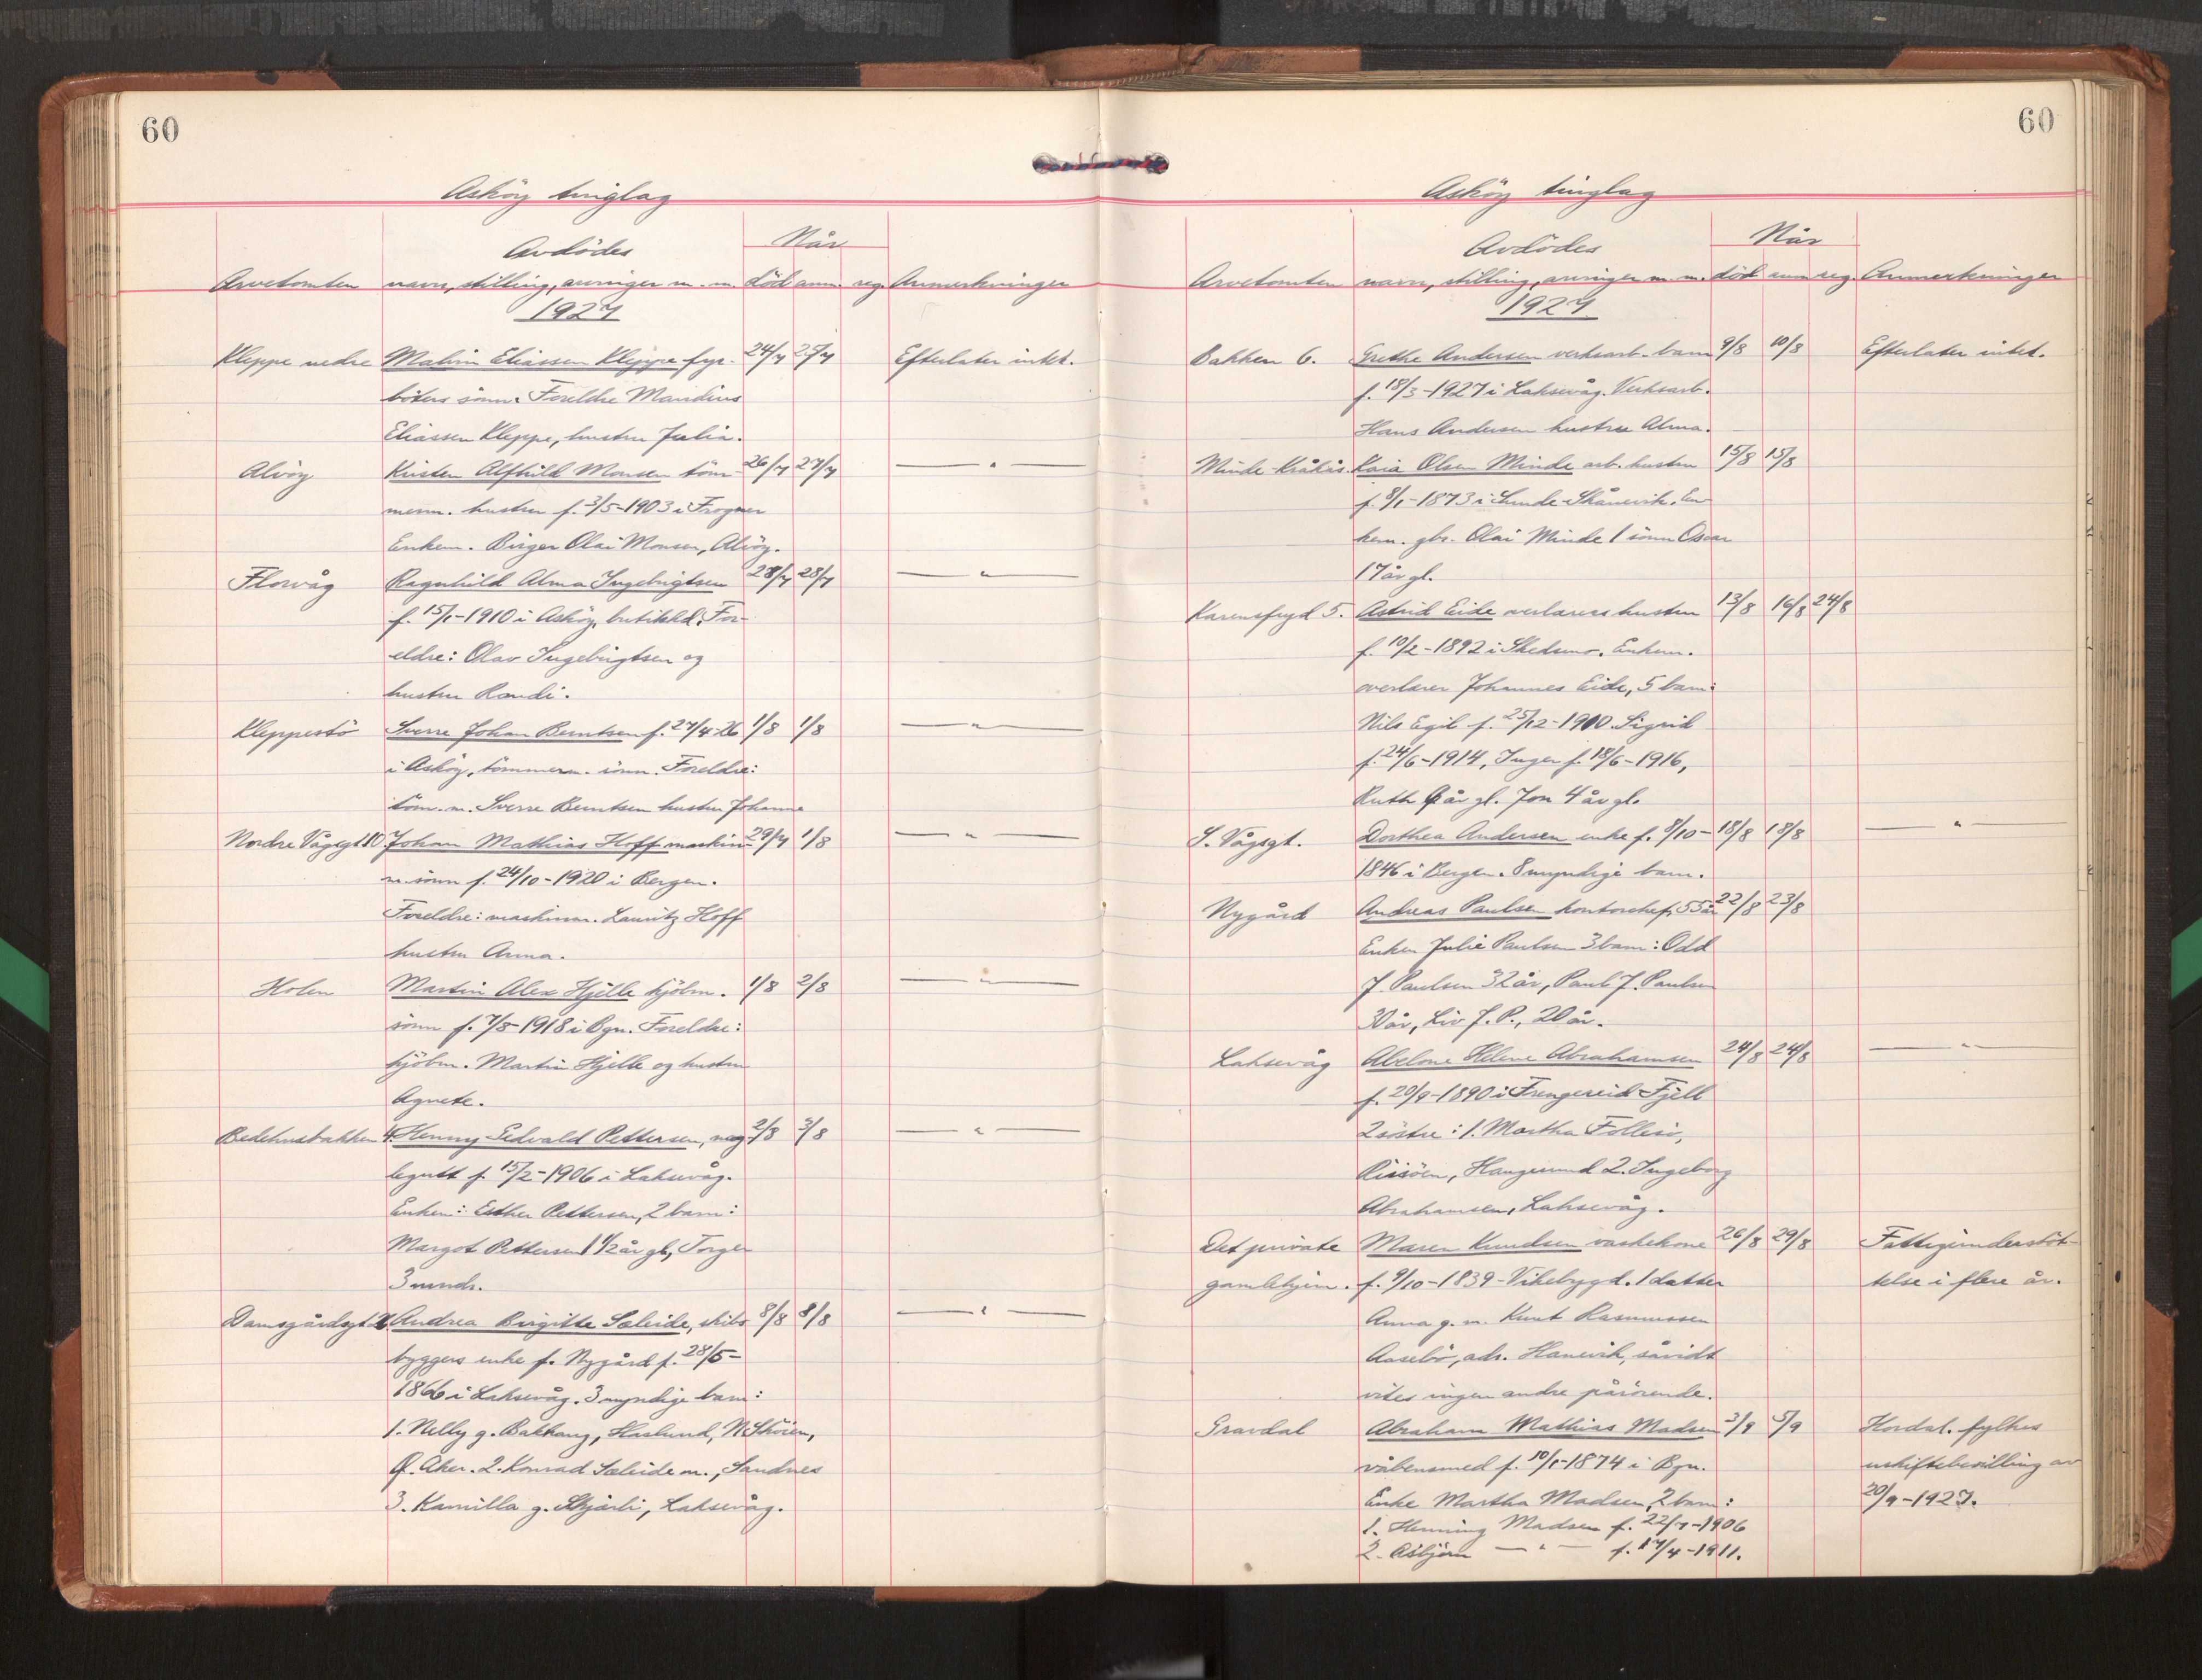 60
Askøy tinglag
Når
Avdödes
Arvetomten navn, stilling, arvinger m.m. död anm. reg. Anmerkninger
1927
Kleppe nedre Malvin Eliassen Kleppe fyr- 24/7 25/7 Efterlater intet.
böters sönn. Foreldre Mandius
Eliassen Kleppe, hustru Julia.
Alvöy Kristen Alfhild Monsen töm- 26/7 27/7 — " —
merm. hustru f. 3/5-1903 i Frogner
Enkem. Birger Olai Monsen, Alvöy.
Florvåg Ragnhild Alma Ingebrigtsen 28/7 28/7 — " —
f. 15/1-1910 i Asköy, butikkd. For-
eldre: Olav Ingebrigtsen og
hustru Randi.
Kleppestö Sverre Johan Berntsen f. 27/4-26 1/8 1/8 — " —
i Asköy, tömmerm. sönn. Foreldre:
töm. m. Sverre Berntsen hustru Johanne
Nordre Vågsgt 10 Johan Mathias Hoff maskin- 29/7 1/8 — " —
m. sönn f. 24/10-1920 i Bergen.
Foreldre: maskinm. Lauritz Hoff
hustru Anna.
Holen Martin Alex Hjelle kjöbm. 1/8 2/8 — " —
sönn f. 7/8-1918 i Bgn. Foreldre:
kjöbm. Martin Hjelle og hustru
Agnete.
Bedehusbakken 4. Henny Edvald Pettersen, nag- 2/8 3/8 — " —
legutt f. 15/2-1906 i Laksevåg.
Enken: Esther Pettersen, 2 barn:
Margot Pettersen 1 1/2 år gl, Torger
3 mnds.
Damsgårdsgt. Andrea Birgitte Sæleide, skibs 8/8 8/8 — " —
byggers enke f. Nygård f. 28/5-
1866 i Laksevåg. 3 myndige barn:
1. Nelly g. Bakhaug, Haslund, N. Skøien,
Ø. Aker. 2. Konrad Sæleide m., Sandnes
3. Kamilla g. Skjærli, Laksevåg.
60
Askøy tinglag
Når
Avdödes
Arvetomten navn, stilling, arvinger m.m. död anm reg. Anmerkninger
1927
Bakken 6. Grethe Andersen verksarb. barn 9/8 10/8 Efterlater intet.
f. 18/3-1927 i Laksevåg. Verksarb.
Hans Andersen hustru Alma.
Minde Kråkås. Kaia Olsen Minde arb. hustru 15/8 15/8
f. 8/1-1873 i Sunde-Skånevik. En-
kem. gbr. Olai Minde 1 sönn Oscar
17 år gl.
Karensfryd 5. Astrid Eide overlærers hustru 13/8 16/8 24/8
f. 10/2-1892 i Skedsmo. Enkem.
overlærer Johannes Eide, 5 barn:
Nils Egil f. 25/12-1910. Sigrid
f. 24/6-1914, Inger f. 18/6-1916,
Ruth 9 år gl. Jon 4 år gl.
S. Vågsgt. Dorthea Andersen enke f. 8/10- 18/8 18/8 — " —
1846 i Bergen. 8 myndige barn.
Nygård Andreas Paulsen kontorchef, 55 år 22/8 23/8
Enken Julie Paulsen 3 barn: Odd
J. Paulsen 32 år, Paul J. Paulsen
30 år, Liv J. P., 20 år.
Laksevåg Abelone Helene Abrahamsen 24/8 24/8 — " —
f. 20/9-1890 i Trengereid Fjell
2 söstre: 1. Martha Follesö,
Risöen, Haugesund 2. Ingeborg
Abrahamsen, Laksevåg.
Det private Maren Knudsen vaskekone 26/8 29/8 Fattigunderstöt-
gamlehjem. f. 9/10-1839-Vikebygd. 1 datter telse i flere år.
Anna g. m. Knut Rasmussen
Aasebö, adr. Hanevik, såvidt
vites ingen andre pårörende.
Gravdal Abraham Mathias Madsen 3/9 5/9 Hordal. fylkes
våbensmed f. 10/1-1874 i Bgn. uskiftebevilling av
Enke Martha Madsen, 2 barn: 20/9-1927.
1. Henning Madsen f. 22/7-1906
2. Asbjørn — " — f. 17/4-1911.